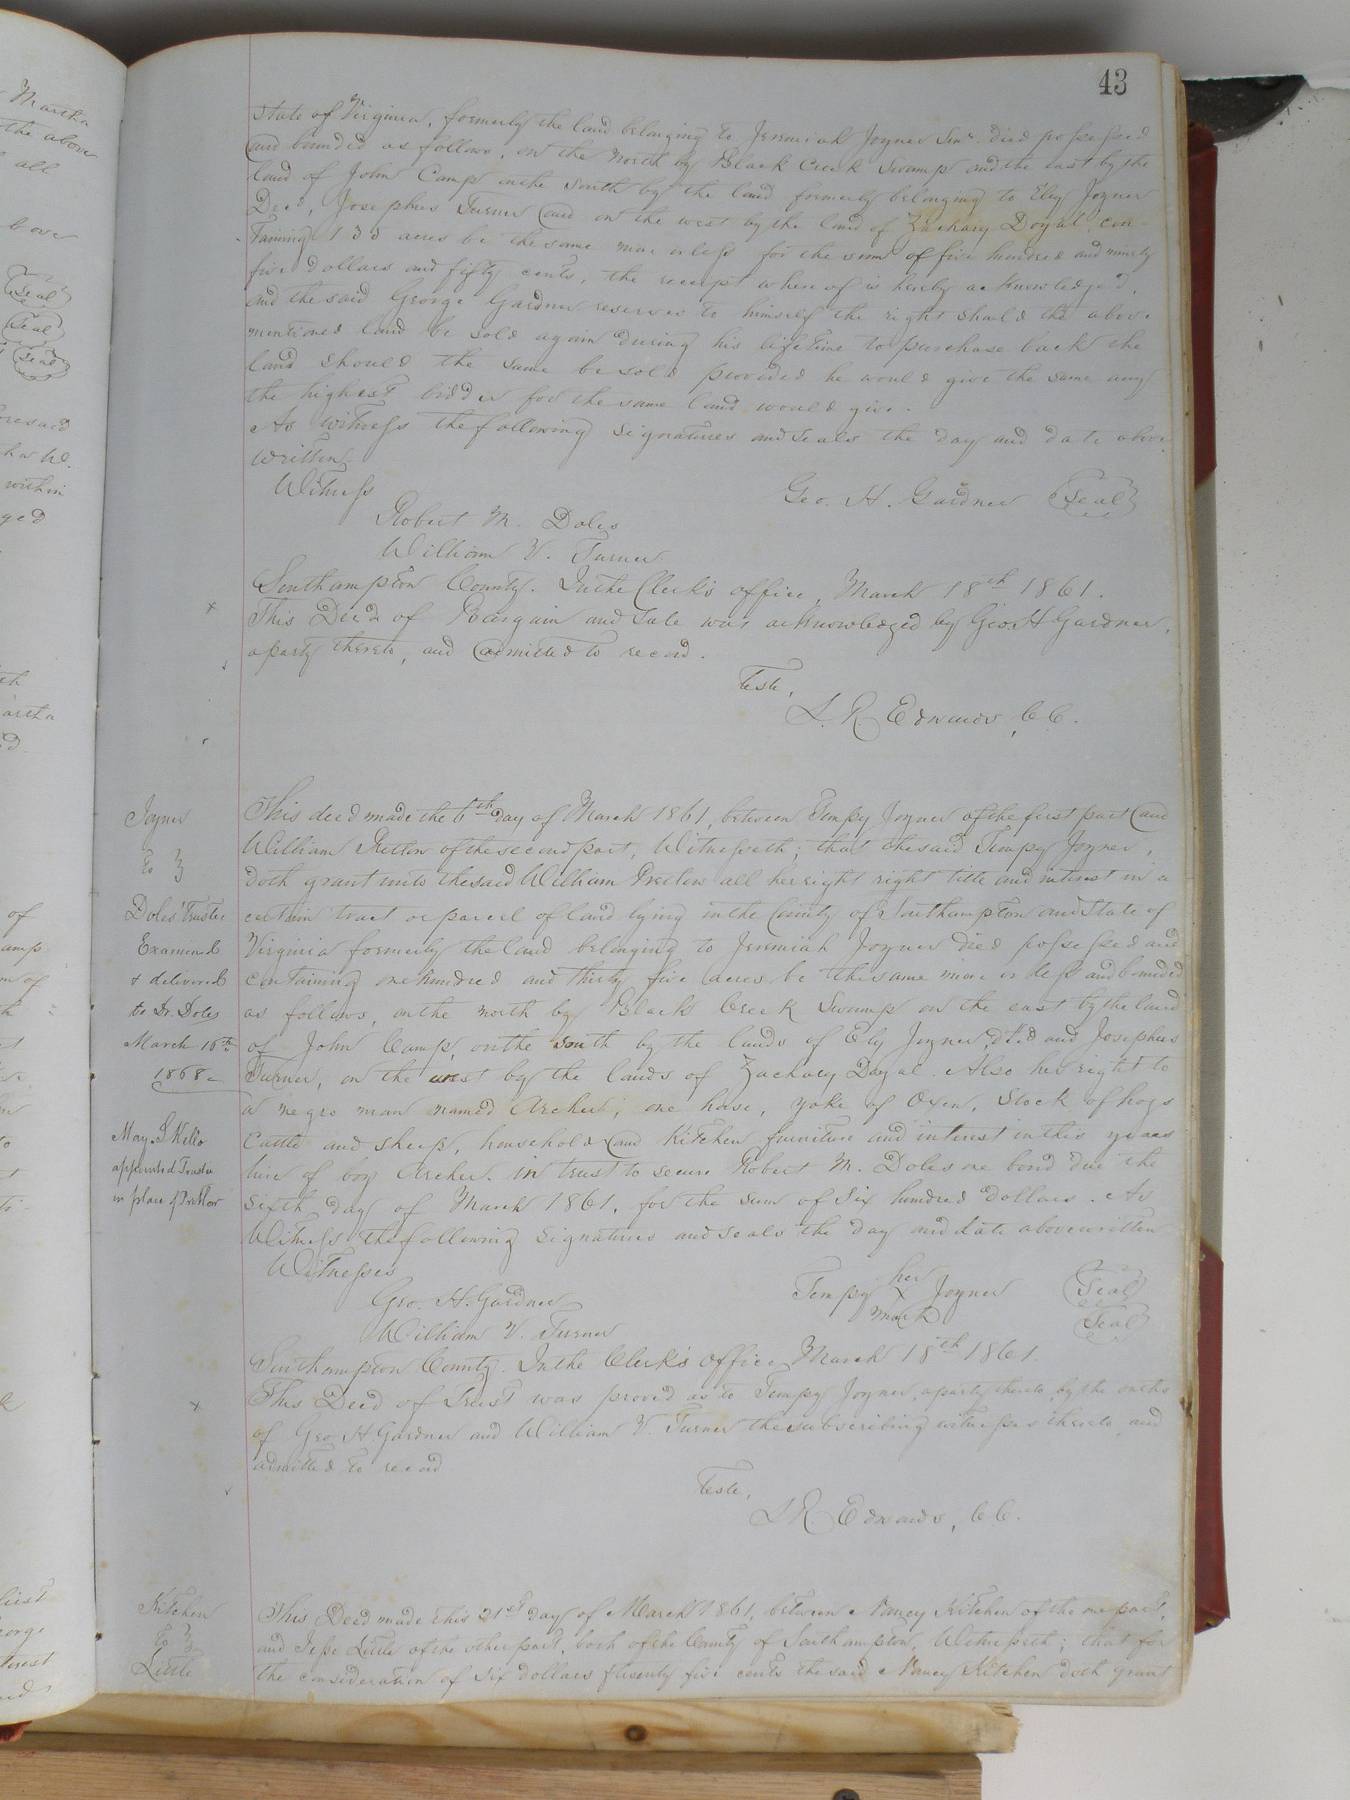 43
State of Virginia, formerly the land belonging to Jeremiah Joyner Senr. died possessed
and bounded as follows, on the North by Black Creek Swamp and the east by the
land of John Camp on the South by the land formerly belonging to Eley Joyner
Decd, Josephus Turner and on the west by the land of Zachary Doyal, con-
taining 135 acres be the same more or less for the sum of five hundred and ninety
five dollars and fifty cents, the receipt where of is hereby acknowledged,
And the said George Gardner reserves to himself the right should the above
mentioned land be sold again during his lifetime to purchase back the
land should the same be sold provided he would give the same any
the highest bidder for the same land would give.
As witness the following signatures and seals the day and date above
written.
Witness
Geo. H. Gardner Seal
Robert M. Doles
William V. Turner
Southampton County. In the Clerk's office, March 18th 1861.
This Deed of Bargain and Sale was acknowledged by Geo. H Gardner,
a party thereto, and admitted to record.
Teste,
L. R. Edwards, C C.
Joyner
to
Doles' Trustee
Examined
& delivered
to Dr. Doles
March 16th
1868
May S Kello
appointed Trustee
in place of Pretlow
This deed made the 6th day of March 1861, between Tempy Joyner of the first part and
William Pretlow of the second part, Witnesseth; that the said Tempy Joyner,
doth grant unto the said William Pretlow all her right right title and interest in a
certain tract or parcel of land lying in the County of Southampton and State of
Virginia formerly the land belonging to Jeremiah Joyner died possessed and
containing one hundred and thirty five acres be the same more or less and bounded
as follows, on the north by Black Creek Swamp on the east by the land
of John Camp, on the south by the lands of Ely Joyner, dcd and Josephus
Turner, on the west by the lands of Zachary Doyal. Also her right to
a negro man named Archer; one horse, yoke of Oxen, Stock of hogs
Cattle and sheep, household and Kitchen furniture and interest in this years
hire of boy Archer. in trust to secure Robert M. Doles one bond due the
sixth day of March 1861, for the sum of six hundred Dollars. As
Witness the following signatures and seals the day and date above written
Witnesses
Geo. H. Gardner
William V. Turner
her
Tempy X Joyner Seal
mark
Seal
Southampton County. In the Clerk's Office March 18th 1861.
This Deed of Trust was proved as to Tempy Joyner, a party thereto, by the oaths
of Geo. H Gardner and William V. Turner the subscribing witnesses thereto, and
admitted to record
Teste,
L R. Edwards, C C.
Kitchen
to
Little
This Deed made this 21st day of March 1861, between Nancy Kitchen of the one part,
and Jesse Little of the other part, both of the County of Southampton, Witnesseth; that for
the consideration of six dollars & twenty five cents the said Nancy Kitchen doth grant